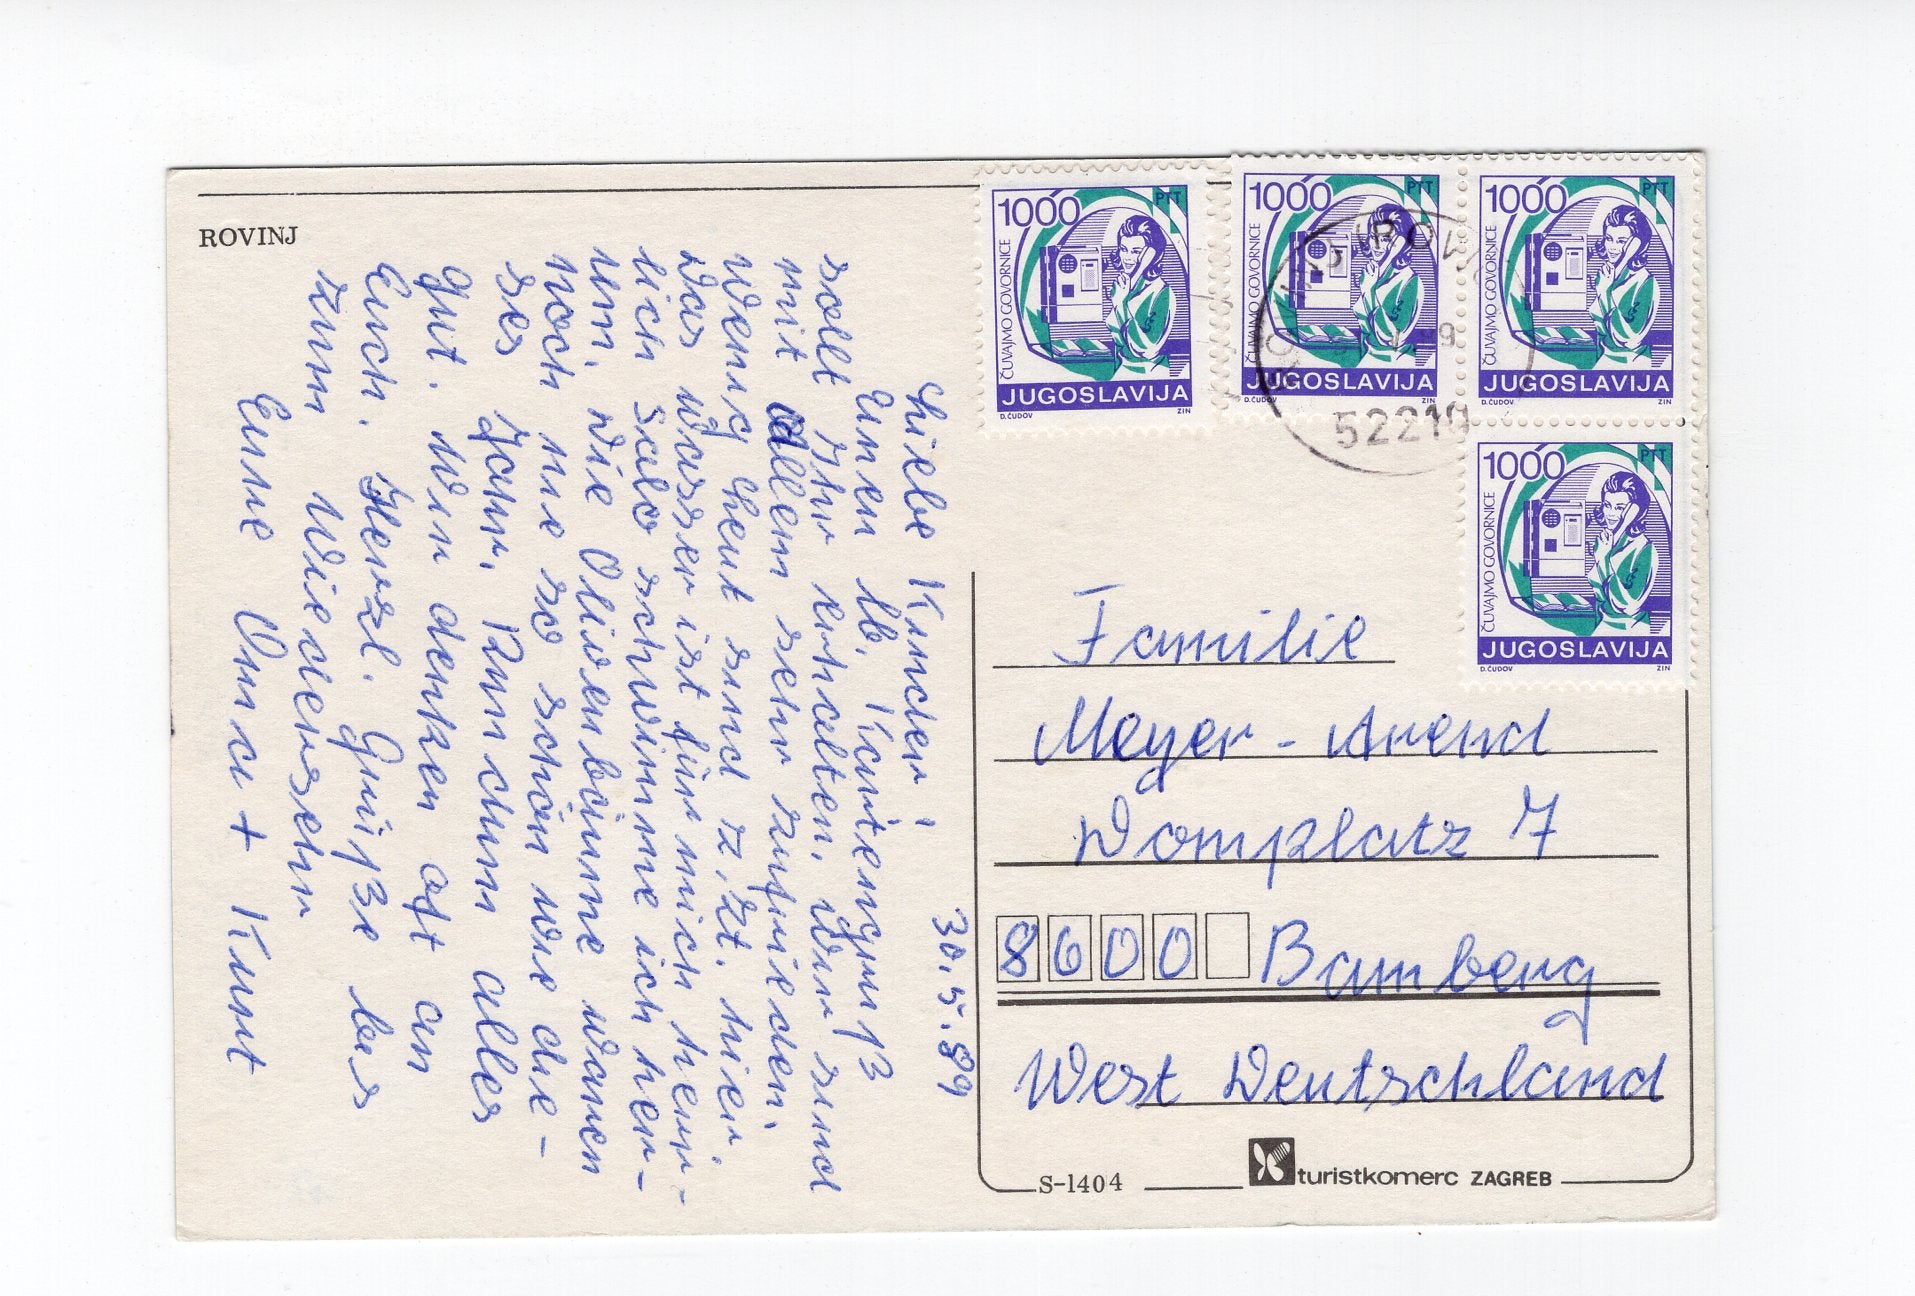 ROVINJ
30.5.89
Liebe Kinder!
Einen lb. Kartengruß
sollt Ihr erhalten. Wir sind
mit allem sehr zufrieden.
Wenig Leut sind z. Zt. hier.
Das Wasser ist für mich herr-
lich salo schwimme ich her-
um. Die Olivenbäume waren
noch nie so schön wie die-
ses Jahr. Rundum alles
gut. Wir denken oft an
Euch. Herzl. Grüße bis
zum Wiedersehn
Eure Omi + Kurt
1000
PTT
ČUVAJMO GOVORNICE
JUGOSLAVIJA
D.ČUDOV
ZIN
1000
PTT
ČUVAJMO GOVORNICE
JUGOSLAVIJA
D.ČUDOV
ZIN
1000
PTT
ČUVAJMO GOVORNICE
JUGOSLAVIJA
D.ČUDOV
ZIN
1000
PTT
ČUVAJMO GOVORNICE
JUGOSLAVIJA
D.ČUDOV
ZIN
52210
Familie
Meyer-Arend
Domplatz 7
8600 Bamberg
West Deutschland
S-1404
turistkomerc ZAGREB